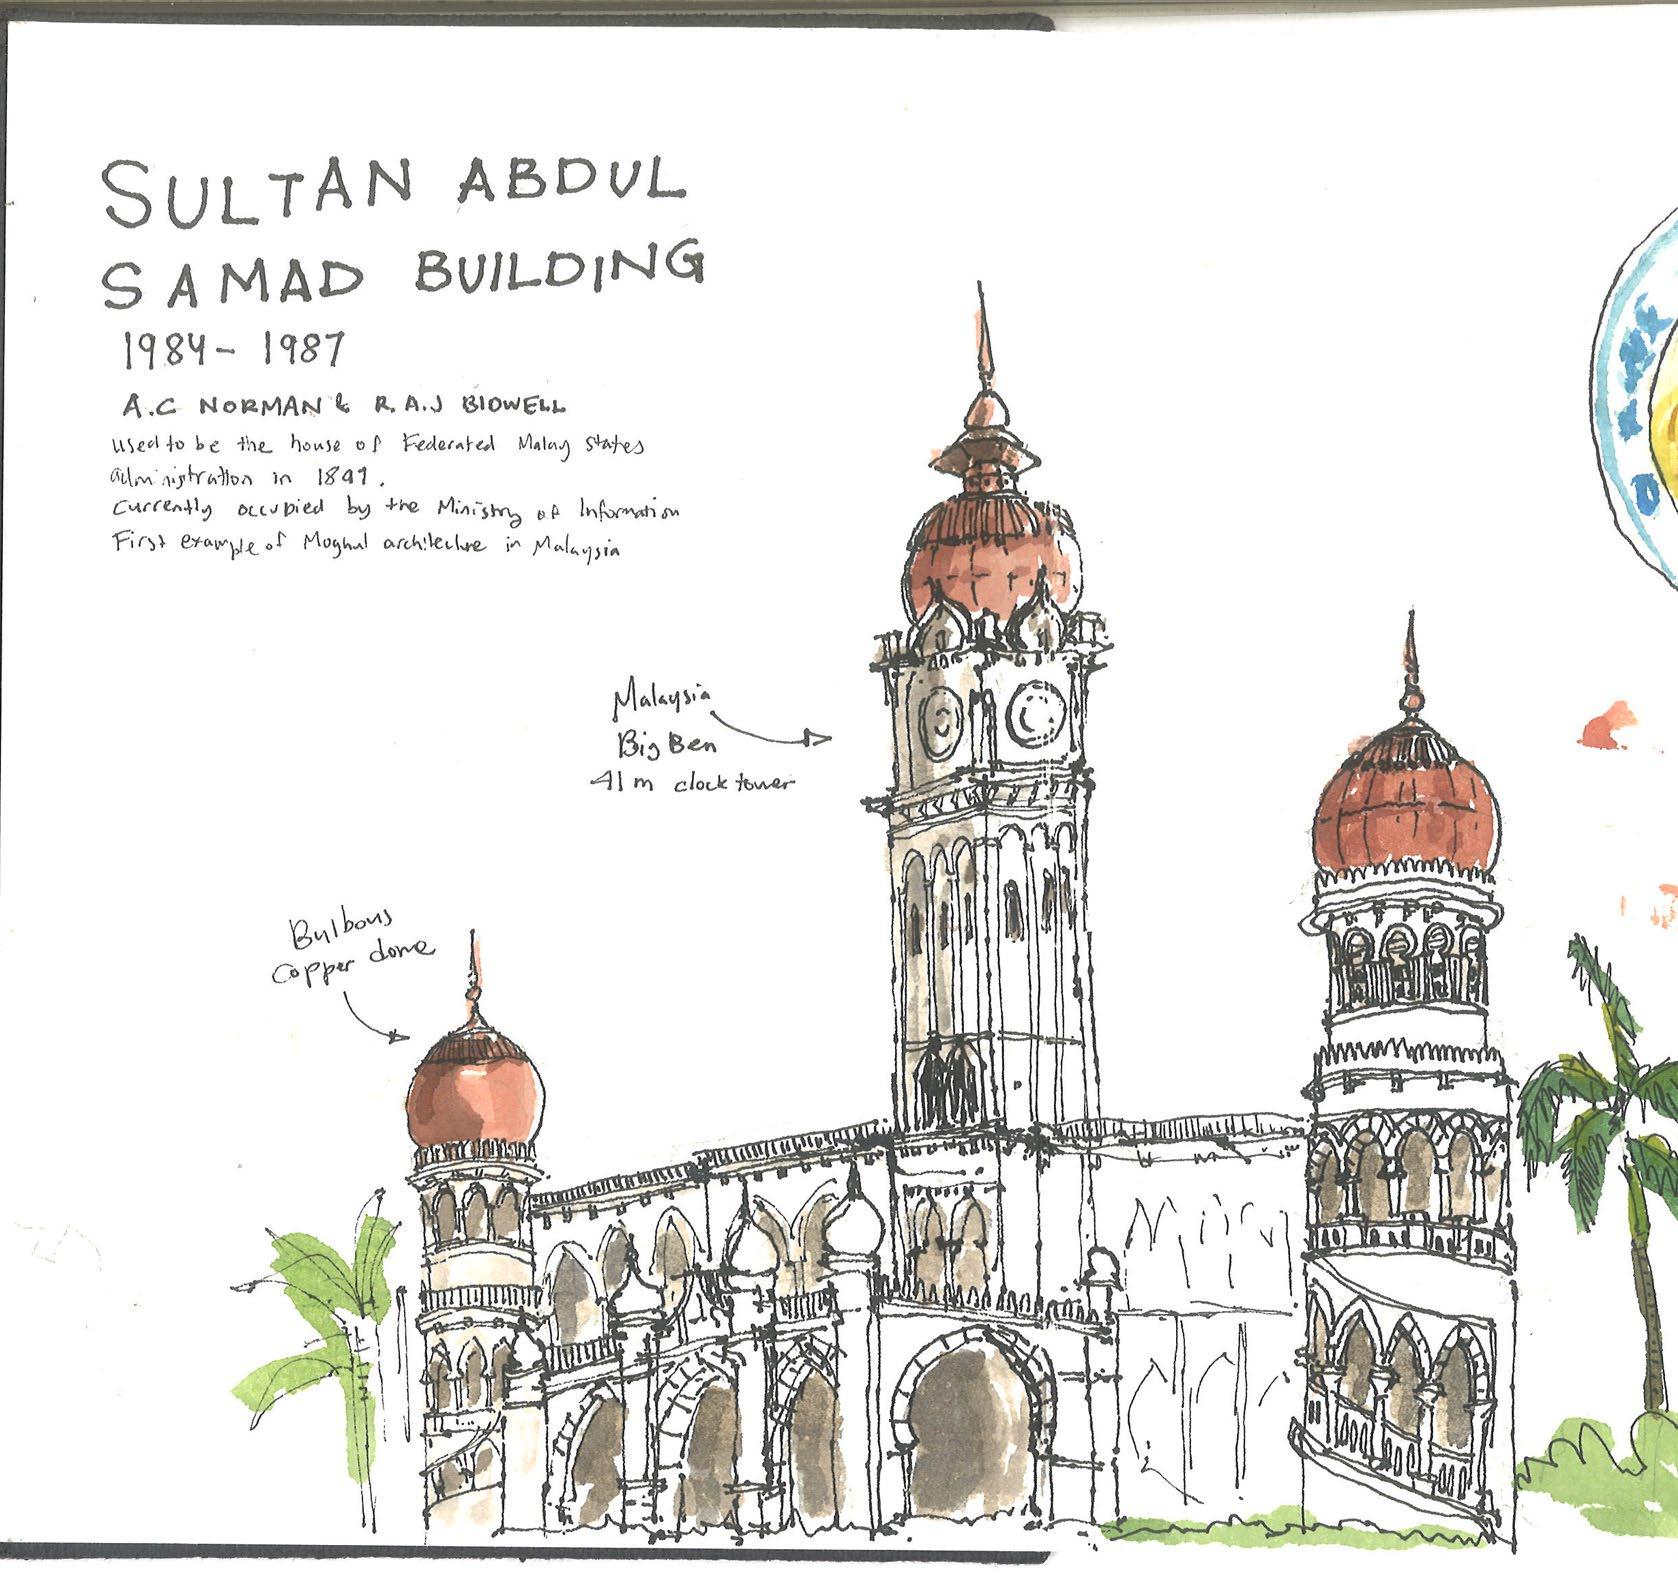 SULTAN ABDUL
SAMAD BUILDING
1984 - 1987
A.C NORMAN & R.A.J BIDWELL
used to be the house of Federated Malay States
administration in 1891.
Currently occupied by the Ministry of Information
First example of Moghul architecture in Malaysia
Malaysia
Big Ben
41 m clock tower
Bulbous
copper dome